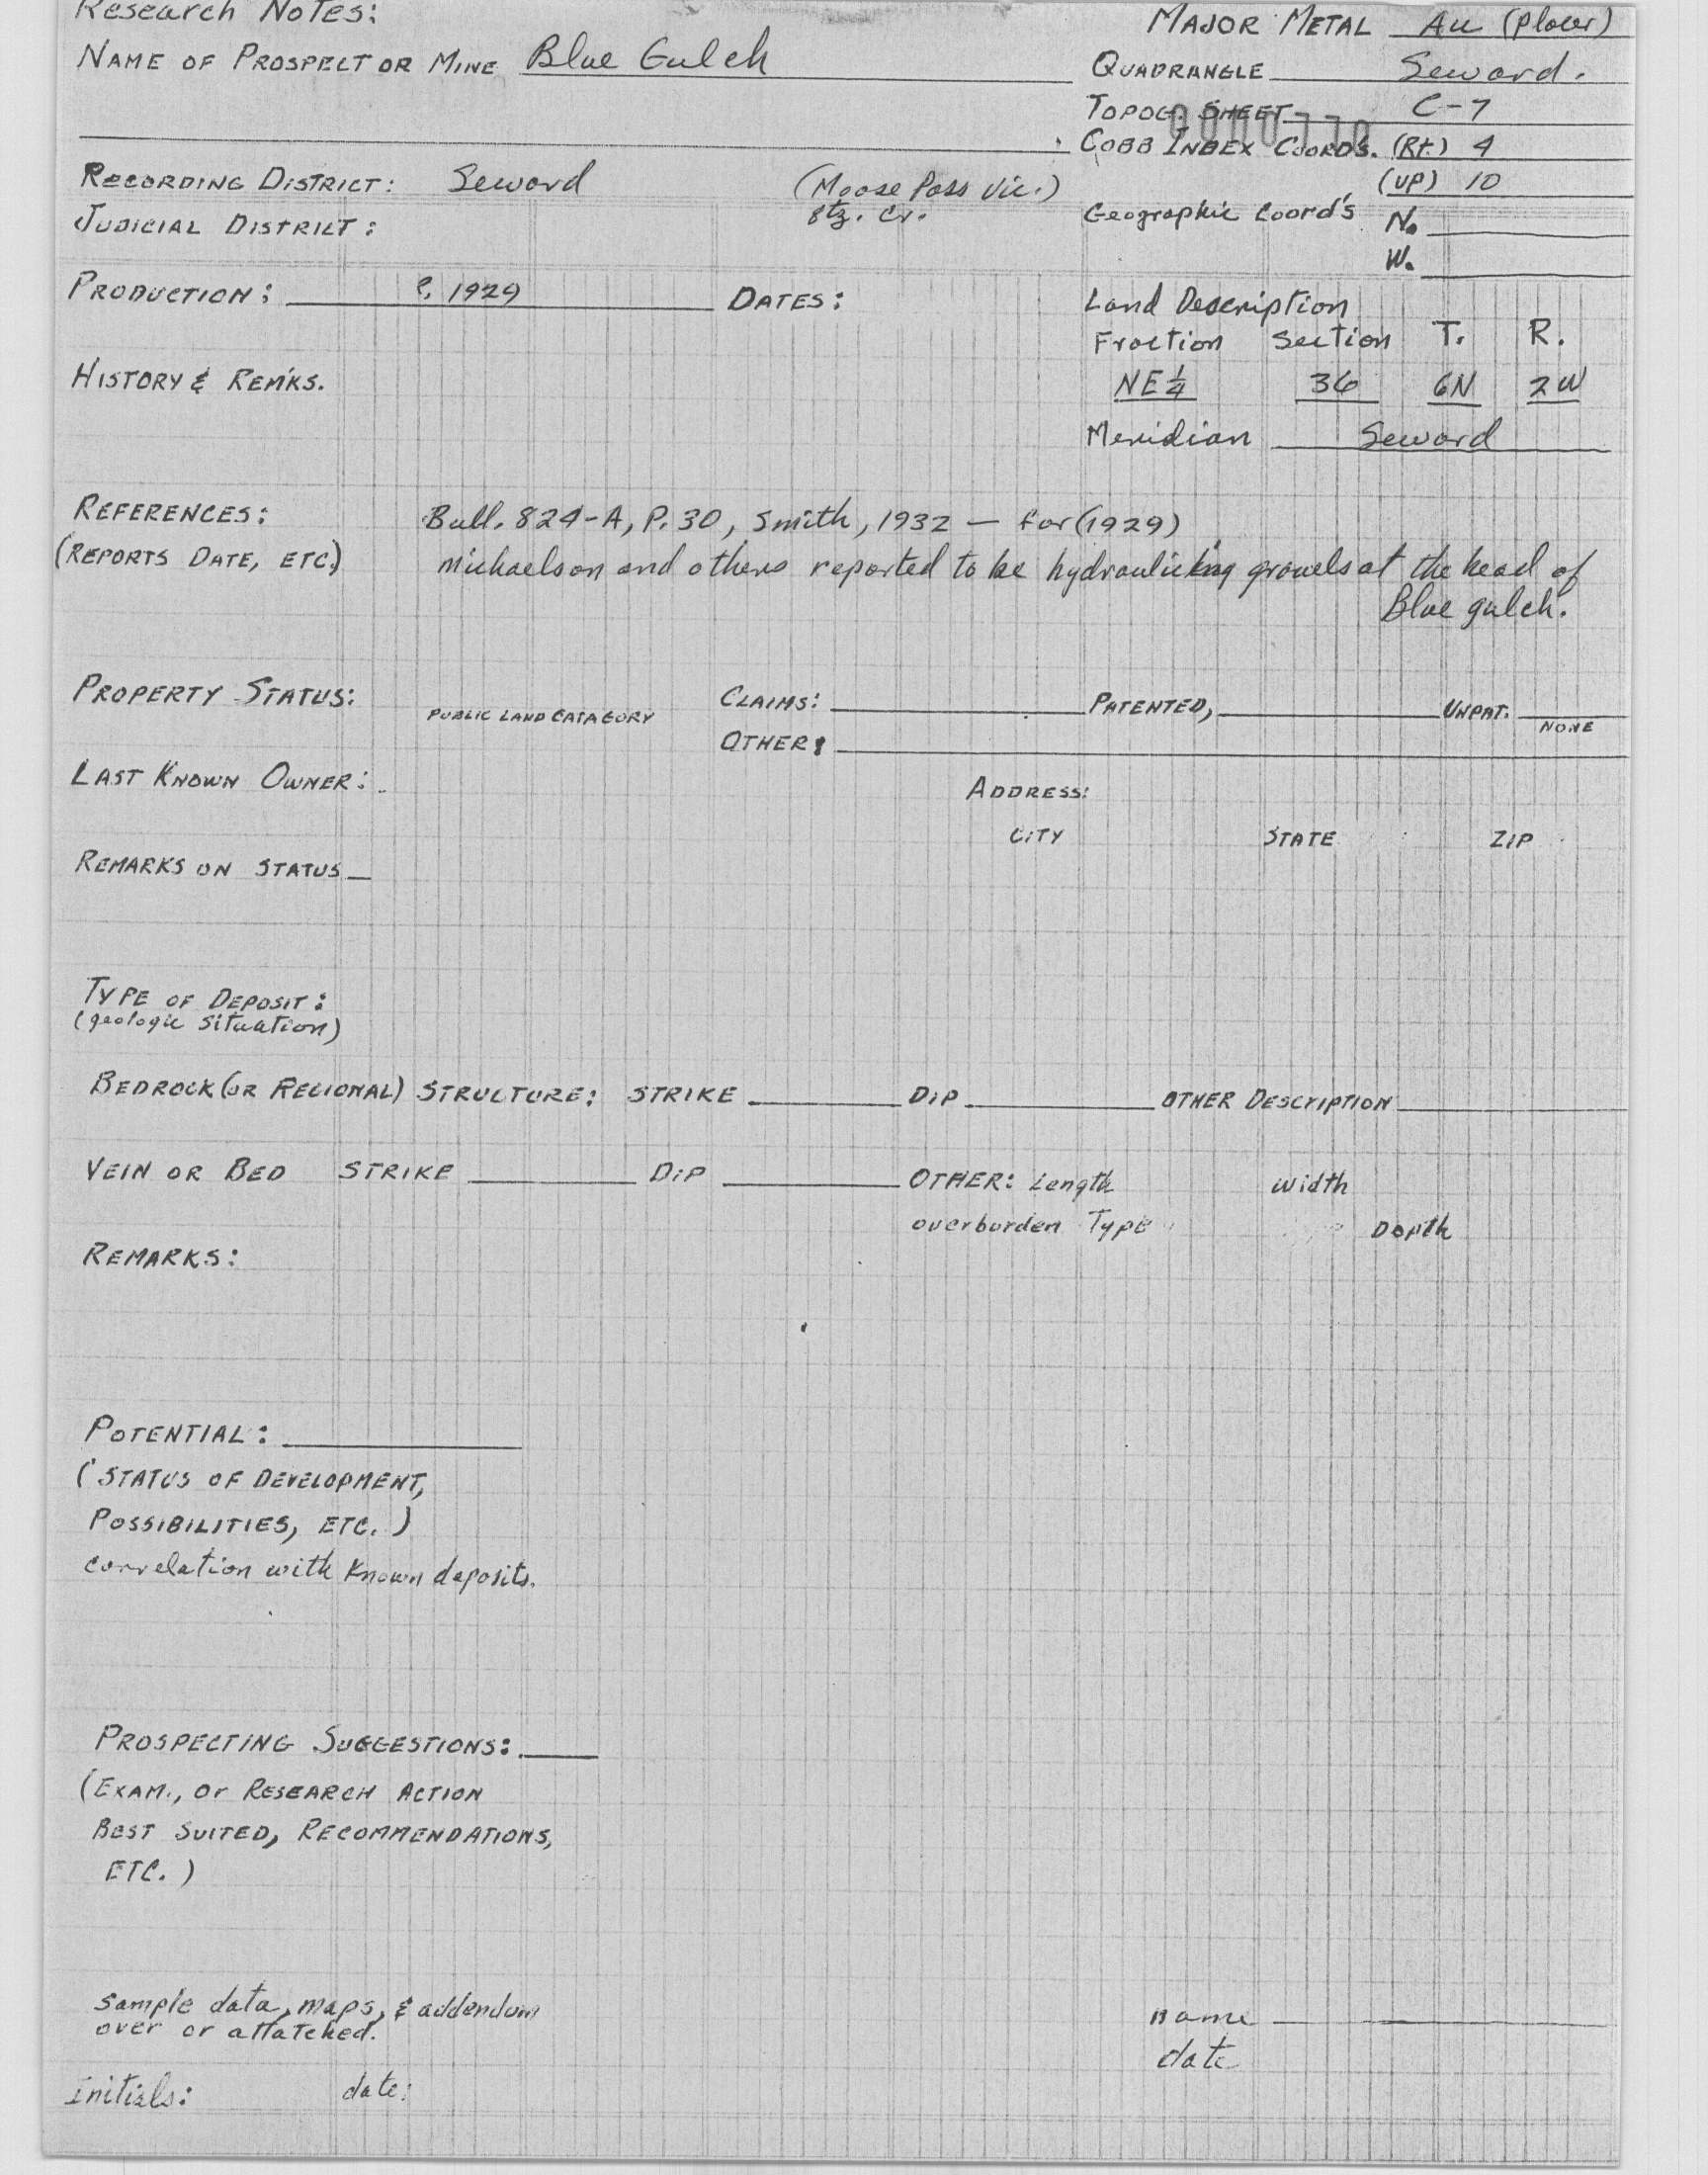 Research Notes:
MAJOR METAL Au (placer)
NAME OF PROSPECT OR MINE Blue Gulch
QUADRANGLE Seward.
TOPOG. SHEET C-7
COBB INDEX COORD'S. (Rt.) 4
(UP) 10
RECORDING DISTRICT: Seward (Moose Pass Vic.)
JUDICIAL DISTRICT:
Geographic Coord's N.
W.
PRODUCTION: P, 1929 DATES:
Land Description
Fraction Section T. R.
HISTORY & REM'KS.
NE 1/4 36 6N 2W
Meridian Seward
REFERENCES: Bull. 824-A, P. 30, Smith, 1932 — for (1929)
(REPORTS DATE, ETC.) Michaelson and others reported to be hydraulicking gravels at the head of
Blue gulch.
PROPERTY STATUS: PUBLIC LAND CATAGORY CLAIMS: PATENTED, UNPAT.
NONE
OTHER:
LAST KNOWN OWNER: ADDRESS:
CITY STATE ZIP
REMARKS ON STATUS
TYPE OF DEPOSIT:
(geologic situation)
BEDROCK (OR REGIONAL) STRUCTURE: STRIKE DIP OTHER DESCRIPTION
VEIN OR BED STRIKE DIP OTHER: Length width
overburden Type Depth
REMARKS:
POTENTIAL:
(STATUS OF DEVELOPMENT,
POSSIBILITIES, ETC.)
correlation with known deposits.
PROSPECTING SUGGESTIONS:
(EXAM., or RESEARCH ACTION
BEST SUITED, RECOMMENDATIONS,
ETC.)
sample data, maps, & addendum
over or attatched.
name
date
Initials: date: